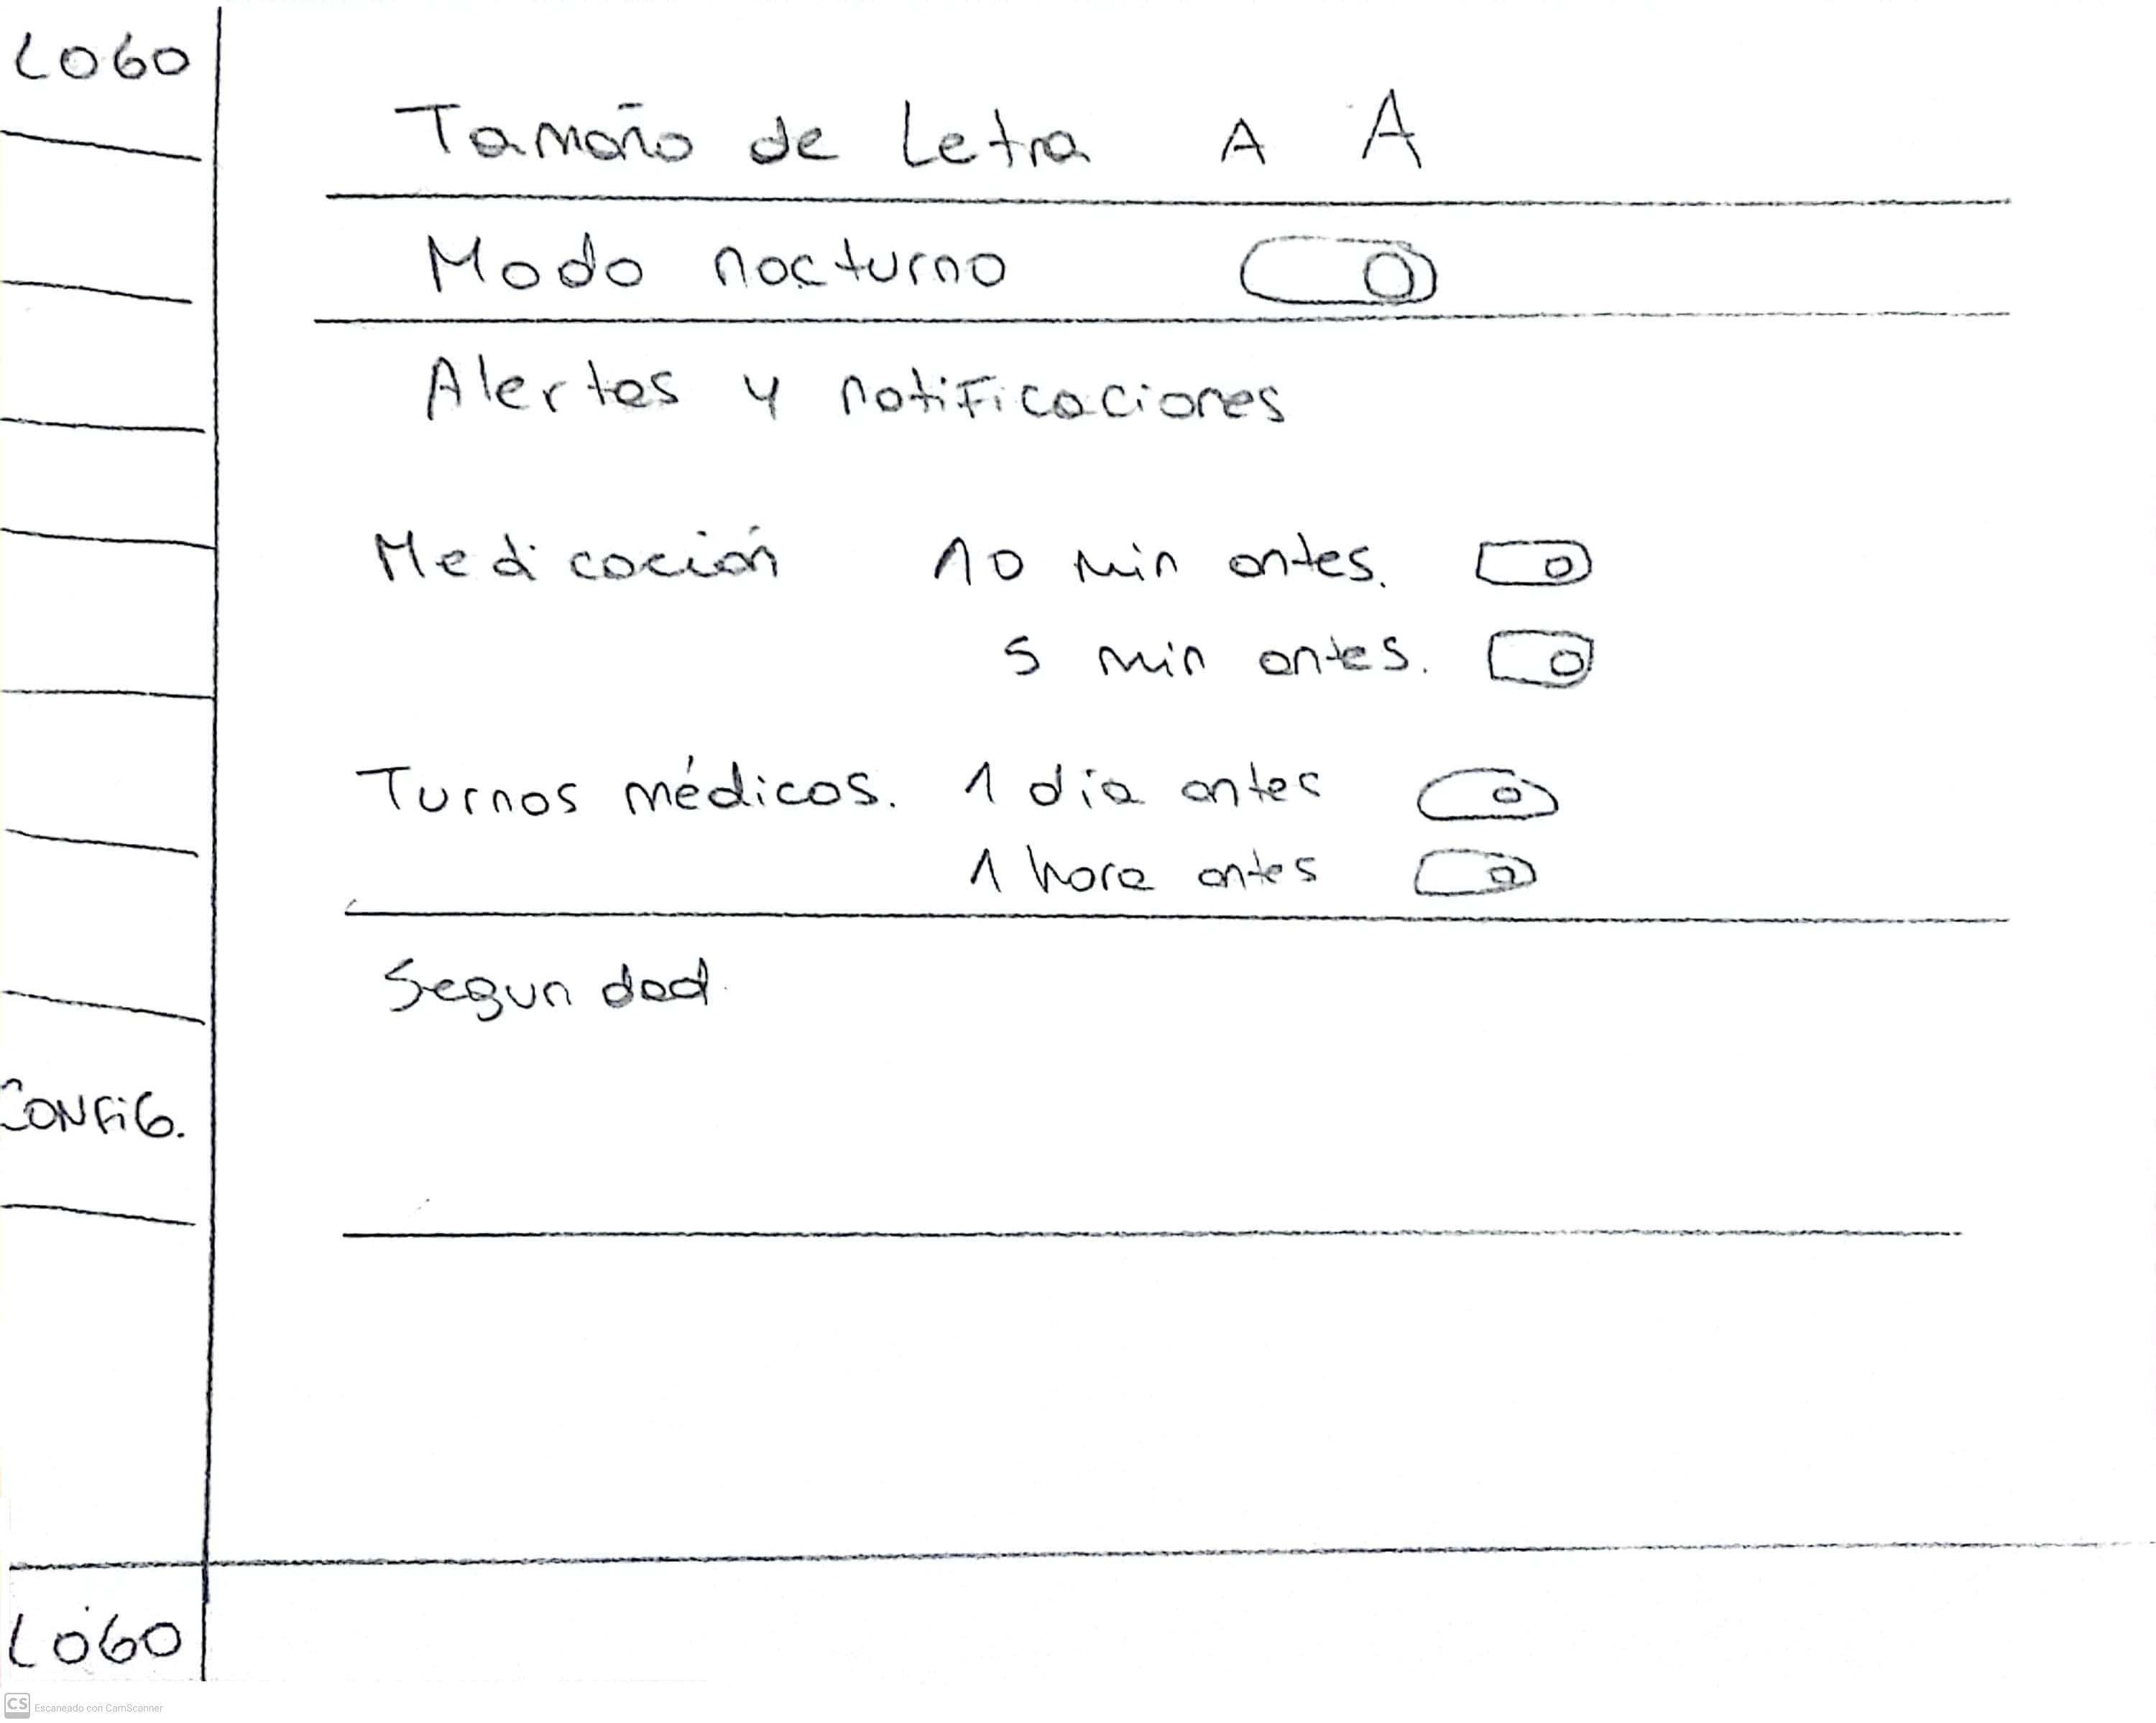 LOGO
Tamaño de Letra A A
Modo nocturno
Alertas y notificaciones
Medicación 10 min antes.
5 min antes.
Turnos médicos. 1 día antes
1 hora antes
Seguridad
CONFIG.
LOGO
CS Escaneado con CamScanner